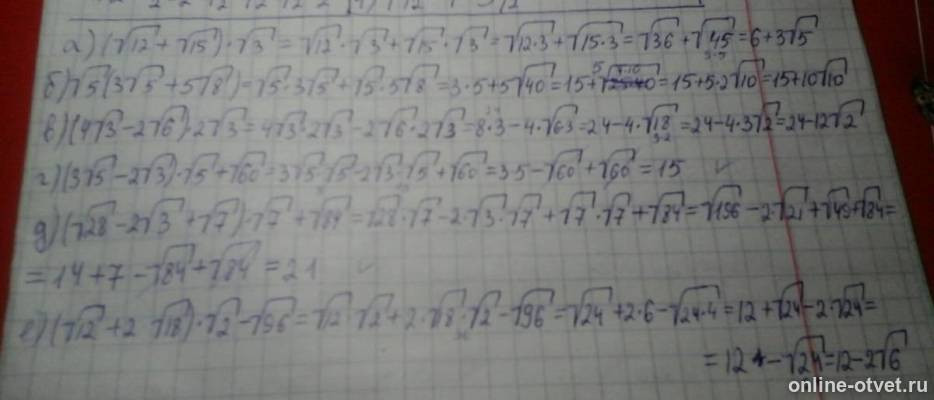 а) (√12 + √15)·√3 = √12·√3 + √15·√3 = √12·3 + √15·3 = √36 + √45 = 6 + 3√5
б) √5(3√5 + 5√8) = √5·3√5 + √5·5√8 = 3·5 + 5√40 = 15 + 5√4·10 = 15 + 5·2√10 = 15 + 10√10
в) (4√3 - 2√6)·2√3 = 4√3·2√3 - 2√6·2√3 = 8·3 - 4·√6·3 = 24 - 4·√18 = 24 - 4·3√2 = 24 - 12√2
г) (3√5 - 2√3)·√5 + √60 = 3√5·√5 - 2√3·√5 + √60 = 3·5 - √60 + √60 = 15
д) (√28 - 2√3 + √7)·√7 + √84 = √28·√7 - 2·√3·√7 + √7·√7 + √84 = √196 - 2·√21 + √49 + √84 =
= 14 + 7 - √84 + √84 = 21
е) (√12 + 2 √18)·√2 - √96 = √12·√2 + 2·√18·√2 - √96 = √24 + 2·6 - √24·4 = 12 + √24 - 2·√24 =
= 12 - √24 = 12 - 2√6
online-otvet.ru